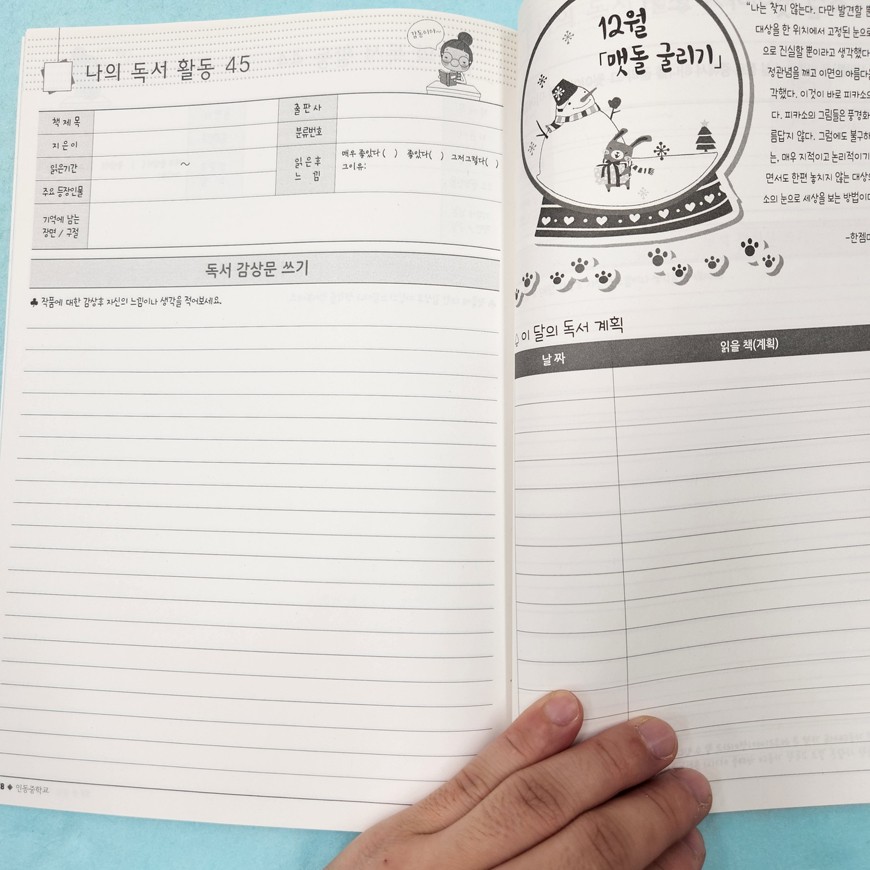 나의 독서 활동 45
감동이야~
책 제 목
출 판 사
지 은 이
분류번호
읽은기간
~
읽 은 후
느 낌
매우 좋았다 ( ) 좋았다 ( ) 그저그렇다 ( )
그이유:
주요 등장인물
기억에 남는
장면 / 구절
독서 감상문 쓰기
♣ 작품에 대한 감상후 자신의 느낌이나 생각을 적어보세요.
8 ◆ 인동중학교
12월
「맷돌 굴리기」
"나는 찾지 않는다. 다만 발견할 뿐
대상을 한 위치에서 고정된 눈으
으로 진실할 뿐이라고 생각했다
정관념을 깨고 이면의 아름다
각했다. 이것이 바로 피카소의
다. 피카소의 그림들은 풍경화
름답지 않다. 그럼에도 불구하
는, 매우 지적이고 논리적이기
면서도 한편 놓치지 않는 대상
소의 눈으로 세상을 보는 방법이
-한젬마
이 달의 독서 계획
날 짜
읽을 책(계획)